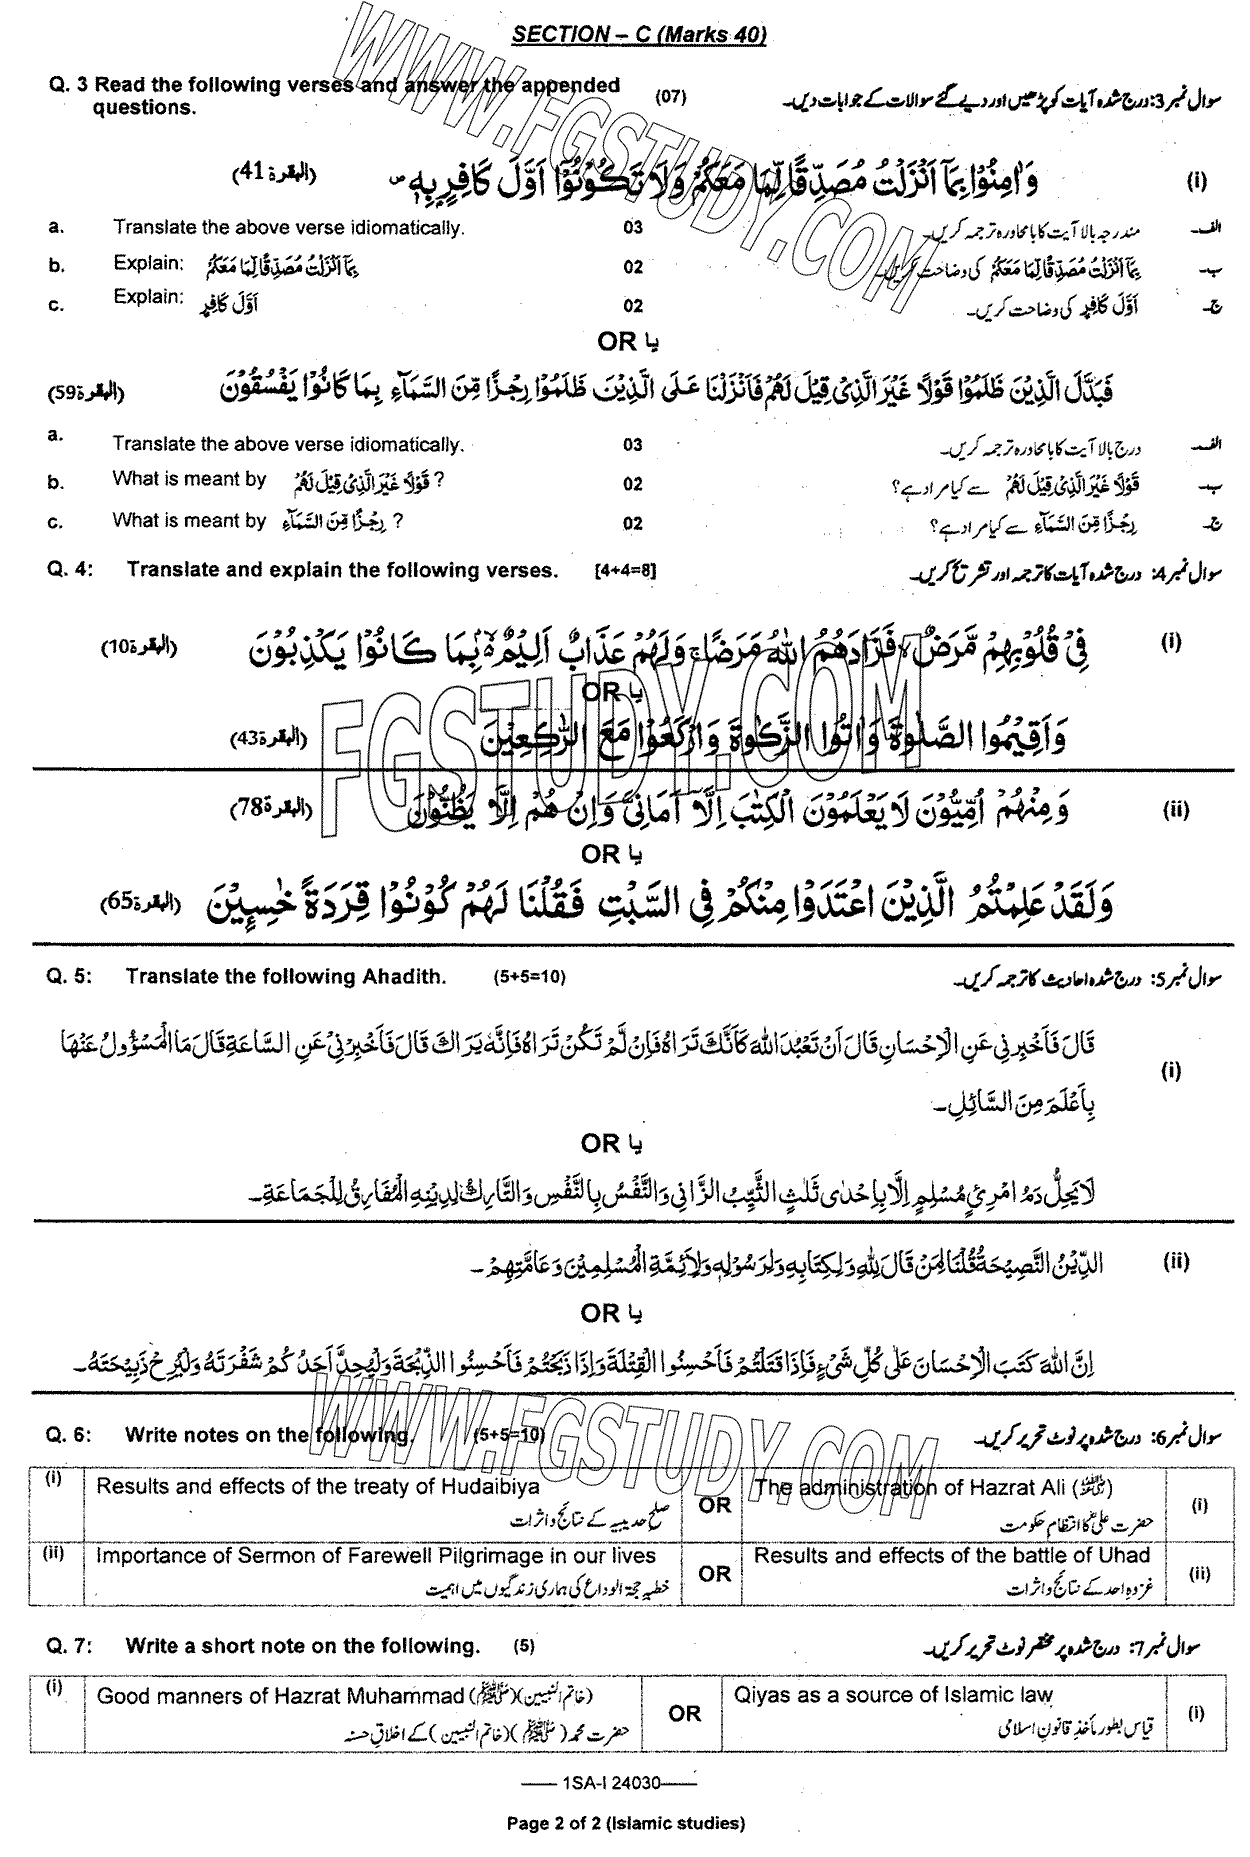 SECTION – C (Marks 40)
Q. 3 Read the following verses and answer the appended questions. (07) سوال نمبر 3: درج شدہ آیات کو پڑھیں اور دیے گئے سوالات کے جوابات دیں۔
(i) وَاٰمِنُوْا بِمَآ اَنْزَلْتُ مُصَدِّقًا لِّمَا مَعَكُمْ وَلَا تَكُوْنُوْٓا اَوَّلَ كَافِرٍۭ بِهٖ ص (البقرۃ 41)
a. Translate the above verse idiomatically. 03 مندرجہ بالا آیت کا بامحاورہ ترجمہ کریں۔ الف۔
b. Explain: بِمَآ اَنْزَلْتُ مُصَدِّقًا لِّمَا مَعَكُمْ 02 بِمَآ اَنْزَلْتُ مُصَدِّقًا لِّمَا مَعَكُمْ کی وضاحت کریں۔ ب۔
c. Explain: اَوَّلَ كَافِرٍ 02 اَوَّلَ كَافِرٍ کی وضاحت کریں۔ ج۔
OR یا
فَبَدَّلَ الَّذِيْنَ ظَلَمُوْا قَوْلًا غَيْرَ الَّذِيْ قِيْلَ لَهُمْ فَاَنْزَلْنَا عَلَى الَّذِيْنَ ظَلَمُوْا رِجْزًا مِّنَ السَّمَآءِ بِمَا كَانُوْا يَفْسُقُوْنَ (البقرۃ 59)
a. Translate the above verse idiomatically. 03 درج بالا آیت کا بامحاورہ ترجمہ کریں۔ الف۔
b. What is meant by قَوْلًا غَيْرَ الَّذِيْ قِيْلَ لَهُمْ ? 02 قَوْلًا غَيْرَ الَّذِيْ قِيْلَ لَهُمْ سے کیا مراد ہے؟ ب۔
c. What is meant by رِجْزًا مِّنَ السَّمَآءِ ? 02 رِجْزًا مِّنَ السَّمَآءِ سے کیا مراد ہے؟ ج۔
Q. 4: Translate and explain the following verses. [4+4=8] سوال نمبر 4: درج شدہ آیات کا ترجمہ اور تشریح کریں۔
(i) فِيْ قُلُوْبِهِمْ مَّرَضٌ فَزَادَهُمُ اللّٰهُ مَرَضًا وَلَهُمْ عَذَابٌ اَلِيْمٌۢ بِمَا كَانُوْا يَكْذِبُوْنَ (البقرۃ 10)
OR یا
وَاَقِيْمُوا الصَّلٰوةَ وَاٰتُوا الزَّكٰوةَ وَارْكَعُوْا مَعَ الرّٰكِعِيْنَ (البقرۃ 43)
(ii) وَمِنْهُمْ اُمِّيُّوْنَ لَا يَعْلَمُوْنَ الْكِتٰبَ اِلَّآ اَمَانِيَّ وَاِنْ هُمْ اِلَّا يَظُنُّوْنَ (البقرۃ 78)
OR یا
وَلَقَدْ عَلِمْتُمُ الَّذِيْنَ اعْتَدَوْا مِنْكُمْ فِي السَّبْتِ فَقُلْنَا لَهُمْ كُوْنُوْا قِرَدَةً خٰسِـِٕيْنَ (البقرۃ 65)
Q. 5: Translate the following Ahadith. (5+5=10) سوال نمبر 5: درج شدہ احادیث کا ترجمہ کریں۔
(i) قَالَ فَأَخْبِرْنِي عَنِ الْاِحْسَانِ قَالَ اَنْ تَعْبُدَ اللّٰهَ كَاَنَّكَ تَرَاهُ فَاِنْ لَّمْ تَكُنْ تَرَاهُ فَاِنَّهُ يَرَاكَ قَالَ فَاَخْبِرْنِيْ عَنِ السَّاعَةِ قَالَ مَا الْمَسْؤُوْلُ عَنْهَا
بِاَعْلَمَ مِنَ السَّائِلِ۔
OR یا
لَا يَحِلُّ دَمُ امْرِئٍ مُسْلِمٍ اِلَّا بِاِحْدٰى ثَلٰثٍ الثَّيِّبُ الزَّانِيْ وَالنَّفْسُ بِالنَّفْسِ وَالتَّارِكُ لِدِيْنِهِ الْمُفَارِقُ لِلْجَمَاعَةِ۔
(ii) الدِّيْنُ النَّصِيْحَةُ قُلْنَا لِمَنْ قَالَ لِلّٰهِ وَلِكِتَابِهٖ وَلِرَسُوْلِهٖ وَلِاَئِمَّةِ الْمُسْلِمِيْنَ وَعَامَّتِهِمْ۔
OR یا
اِنَّ اللّٰهَ كَتَبَ الْاِحْسَانَ عَلٰى كُلِّ شَيْءٍ فَاِذَا قَتَلْتُمْ فَاَحْسِنُوا الْقِتْلَةَ وَاِذَا ذَبَحْتُمْ فَاَحْسِنُوا الذِّبْحَةَ وَلْيُحِدَّ اَحَدُكُمْ شَفْرَتَهُ وَلْيُرِحْ ذَبِيْحَتَهُ۔
Q. 6: Write notes on the following. (5+5=10) سوال نمبر 6: درج شدہ پر نوٹ تحریر کریں۔
(i) Results and effects of the treaty of Hudaibiya OR The administration of Hazrat Ali (رضی اللہ عنہ) (i)
صلح حدیبیہ کے نتائج و اثرات حضرت علیؓ کا انتظام حکومت
(ii) Importance of Sermon of Farewell Pilgrimage in our lives OR Results and effects of the battle of Uhad (ii)
خطبہ حجۃ الوداع کی ہماری زندگیوں میں اہمیت غزوہ احد کے نتائج و اثرات
Q. 7: Write a short note on the following. (5) سوال نمبر 7: درج شدہ پر مختصر نوٹ تحریر کریں۔
(i) Good manners of Hazrat Muhammad (ﷺ)(خاتم النبیین) OR Qiyas as a source of Islamic law (i)
حضرت محمد (ﷺ)(خاتم النبیین) کے اخلاقِ حسنہ قیاس بطور مأخذِ قانونِ اسلامی
—— 1SA-I 24030——
Page 2 of 2 (Islamic studies)
WWW.FGSTUDY.COM
FGSTUDY.COM
WWW.FGSTUDY.COM